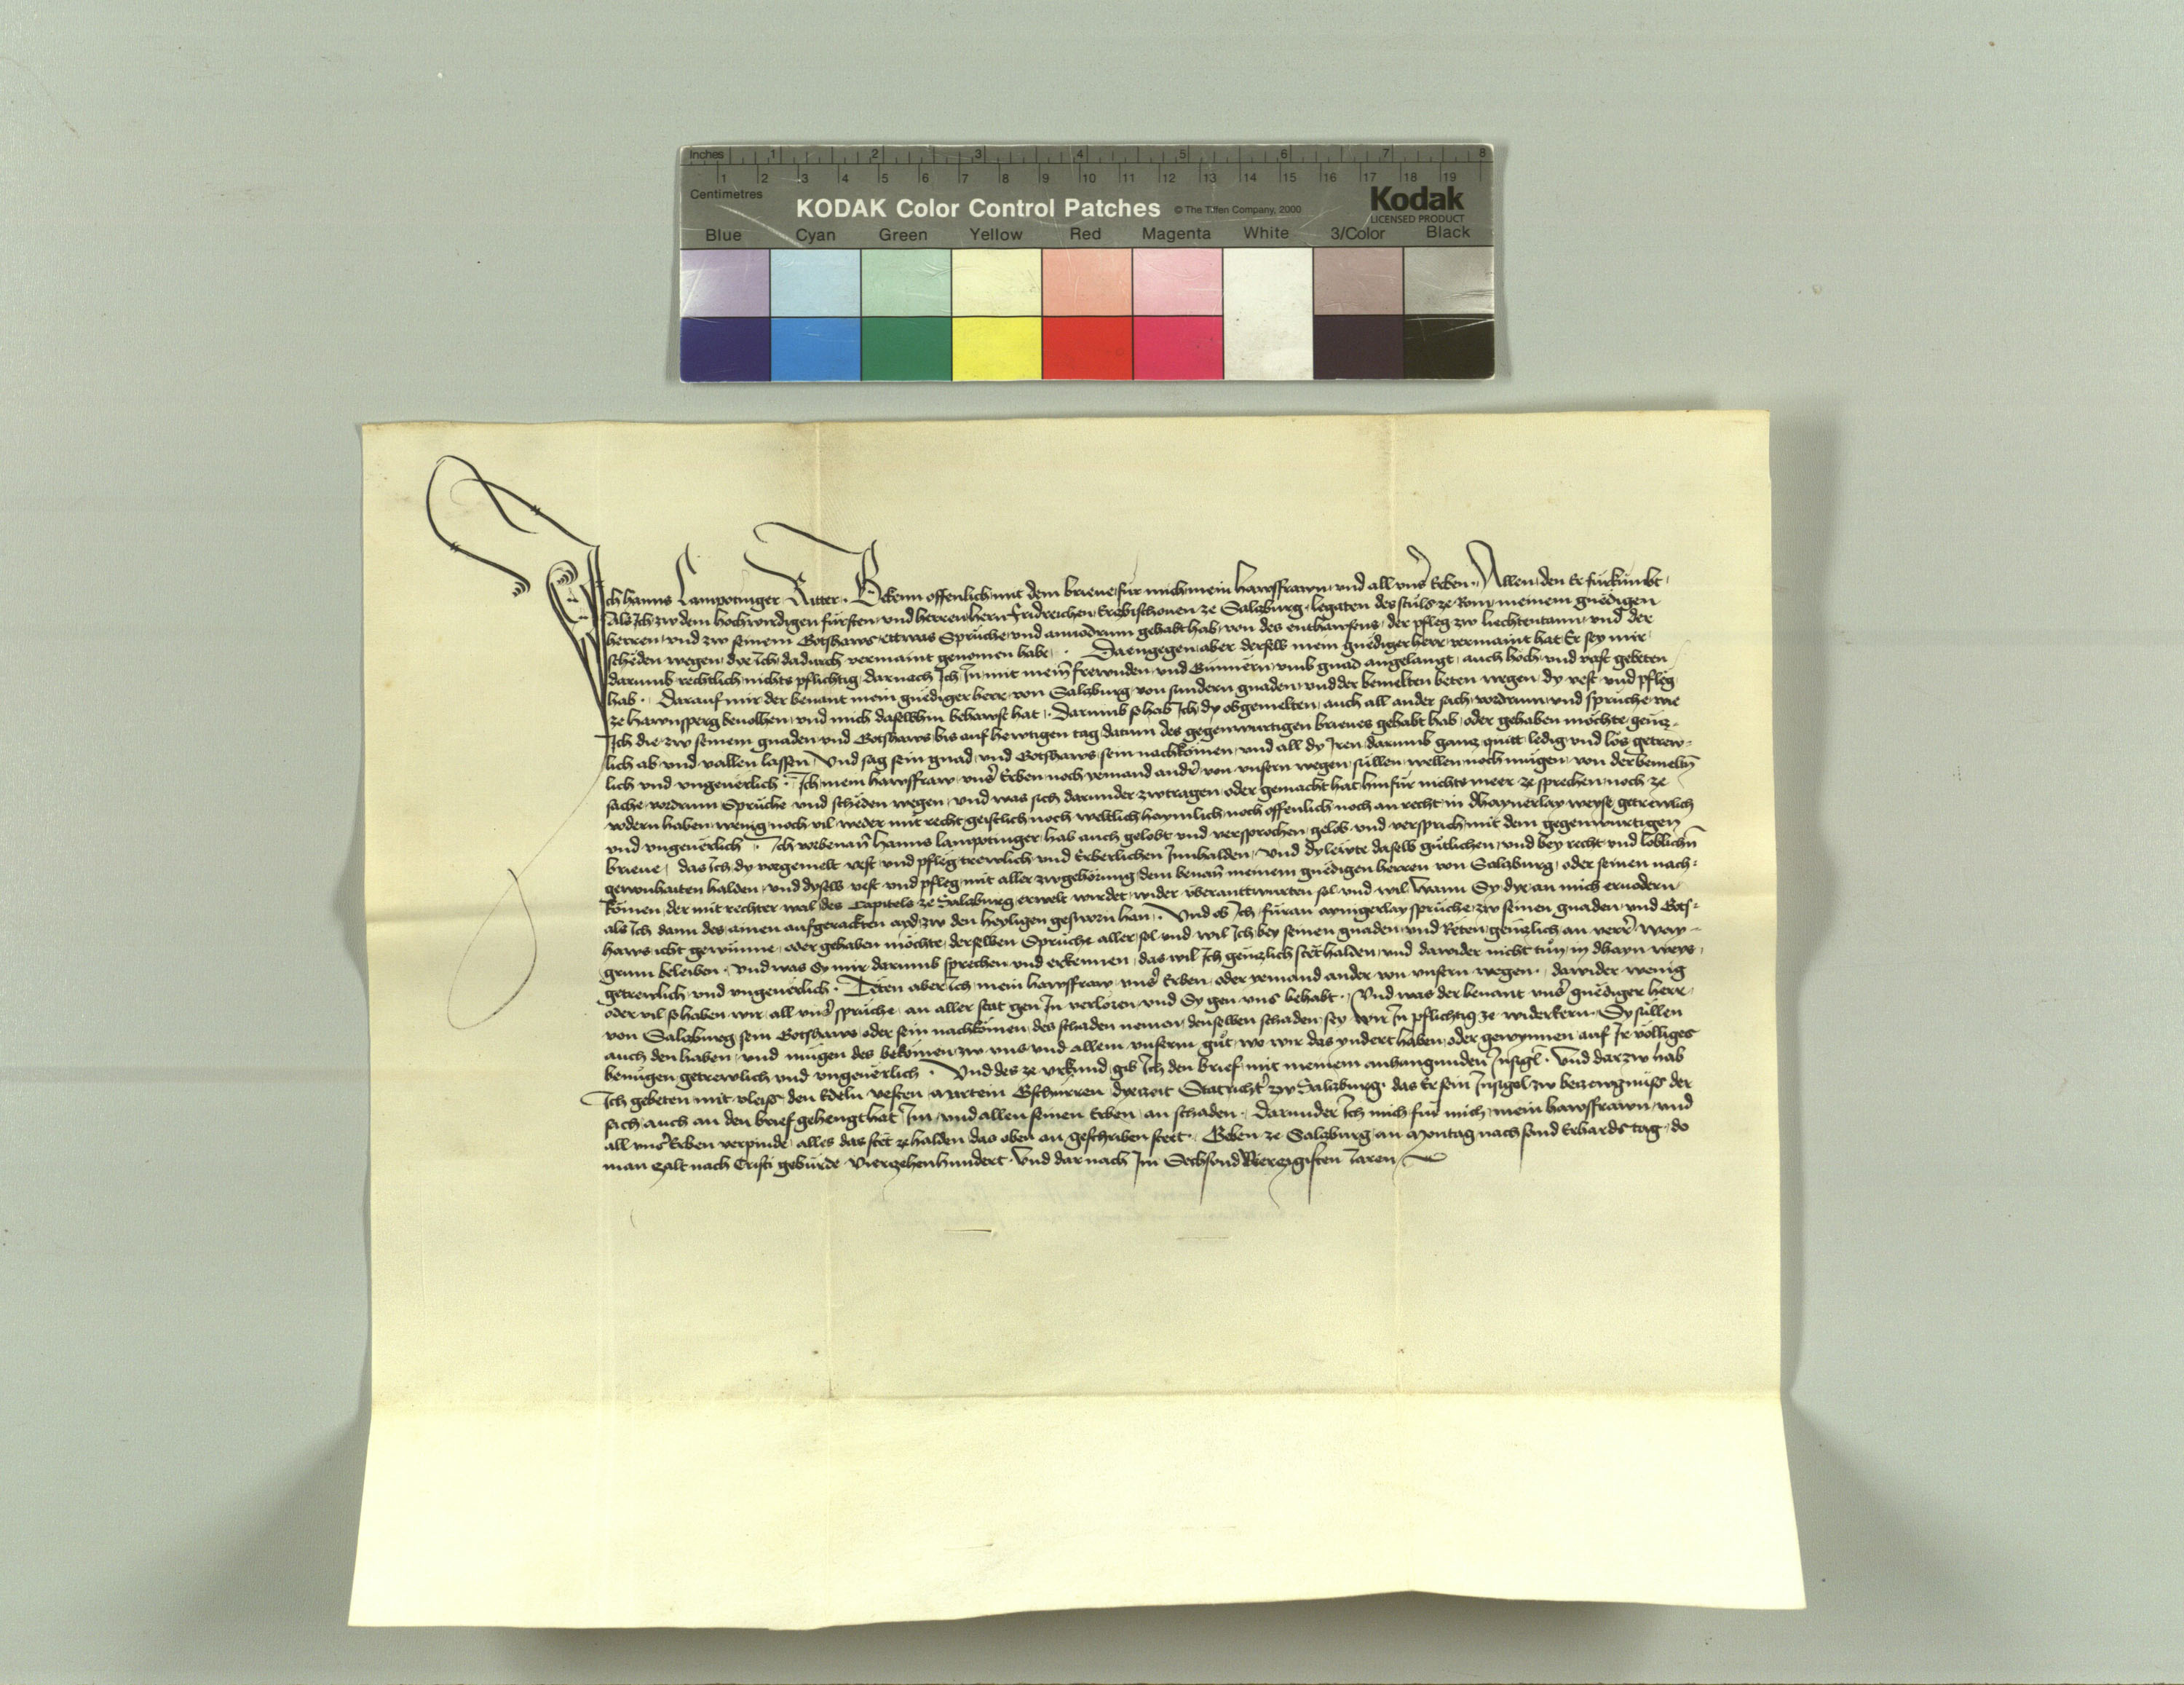 Inches 1 2 3 4 5 6 7 8
1 2 3 4 5 6 7 8 9 10 11 12 13 14 15 16 17 18 19
Centimetres
KODAK Color Control Patches © The Tiffen Company, 2000 Kodak
LICENSED PRODUCT
Blue Cyan Green Yellow Red Magenta White 3/Color Black
Ich Hanns Lampotinger Ritter. Bekenn offenlich mit dem brieue für mich mein hawsfrawn und all unser Erben. Allen den Er fürkumbt
Als Ich zw dem hochwirdigen fürsten und herren hern Fridreichen Erczbischouen ze Salczburg legaten des stuls ze Rom meinem gnëdigen
herren und zw seinem Gotshaws ettwas Sprüche und anuodrum gehabt hab von des enthawsens der pfleg zw Liechtentann und der
schëden wegen dye ich dadurch vermaint genomen habe. Daengegen aber derselb mein gnëdiger herr vermaint hat Er sey mir
darumb rechtlich nichts pflichtig darnach Ich In mit mein frewnden und Günnern umb gnad angelangt auch hoch und vast gebeten
hab. Darauf mir der benant mein gnëdiger herr von Salczburg von sundern gnaden und der bemelten beten wegen dy vest und pfleg
ze Hawnsperg beuolhen und mich daselbhin behawst hat. Darumb so hab Ich dy obgemelten auch all ander sach vordrum und sprüche wie
Ich die zw seinem gnaden und Gotshaws bis auf hewtigen tag datum des gegenwurtigen brieues gehabt hab oder gehaben möchte gëncz-
lich ab und vallen lassen Und sag sein gnad und Gotshaws sein nachkomen und all dy Iren darumb gancz quitt ledig und los getrew-
lich und ungeuërlich. Ich mein hawsfraw unser Erben noch yemand ander von unsern wegen süllen wellen noch mügen von der bemeltn
sache vordrum Sprüche und schëden wegen und was sich darunder zwtragen oder gemacht hat hinfür nichts meer ze sprechen noch ze
vodern haben wenig noch vil weder mit recht geistlich noch weltlich haymlich noch offenlich noch an recht in dhaynerlay weyse getrewlich
und ungeuërlich. Ich vorbenant Hanns Lampotinger hab auch gelobt und versprochen gelob und versprich mit dem gegenwurtigen
brieue das Ich dy vorgemelt vest und pfleg trewlich und Erberlichen Innhalden Und dy lewte daselb gütlichen und bey recht und löblichn
gewonhaiten halden und dyselb vest und pfleg mit aller zwgehörung dem benantn meinem gnëdigen herren von Salczburg oder seinen nach-
komen der mit rechter wal des Capitels ze Salczburg erwelt wirdet wider überanttwurten sol und wil wann Sy dye an mich eruodern
als Ich dann des ainen aufgerackten ayd zw den heyligen gesworn han. Und ob Ich füran aynigerlay sprüche zw seinen gnaden und Gots-
haws icht gewünne oder gehaben möchte derselben Sprüche aller sol und wil Ich bey seinen gnaden und Rëten gënczlich an verrer way-
grum beleiben. Und was Sy mir darumb sprechen und erkennen das wil Ich gënczlich stët halden und dawider nicht tun in dhayn weys
getrewlich und ungeuërlich. Tëten aber ich mein hawsfraw unser Erben oder yemand ander von unsern wegen dawider wenig
oder vil so haben wir all unser sprüche an aller stat gen In verloren und Sy gen uns behabt. Und was der benant unser gnëdiger herr
von Salczburg sein Gotshaws oder sein nachkomen des schaden nemen denselben schaden sey wir In pflichtig ze widerkern. Sy süllen
auch den haben und mügen des bekomen zw uns und allem unserm gut wo wir das yndert haben oder gewynnen auf Ir völliges
benügen getrewlich und ungeuërlich. Und des ze urkund gib Ich den brief mit meinem anhangunden Insigl. Und darzw hab
Ich gebeten mit vleiss den Edeln vesten Martein Gschürren dyeczeit Statrichter zw Salczburg das Er sein Insigel zw beczewgnüss der
sach auch an den brief gehengt hat Im und allen seinen Erben an schaden. Darunder Ich mich für mich mein hawsfrawn und
all unser Erben verpinde alles das stët ze halden das oben an geschriben stet. Geben ze Salczburg an Montag nach sand Erhards tag do
man czalt nach Cristi gebürde Vierczehenhundert und darnach Im Sechsund Vierczigisten Jaren